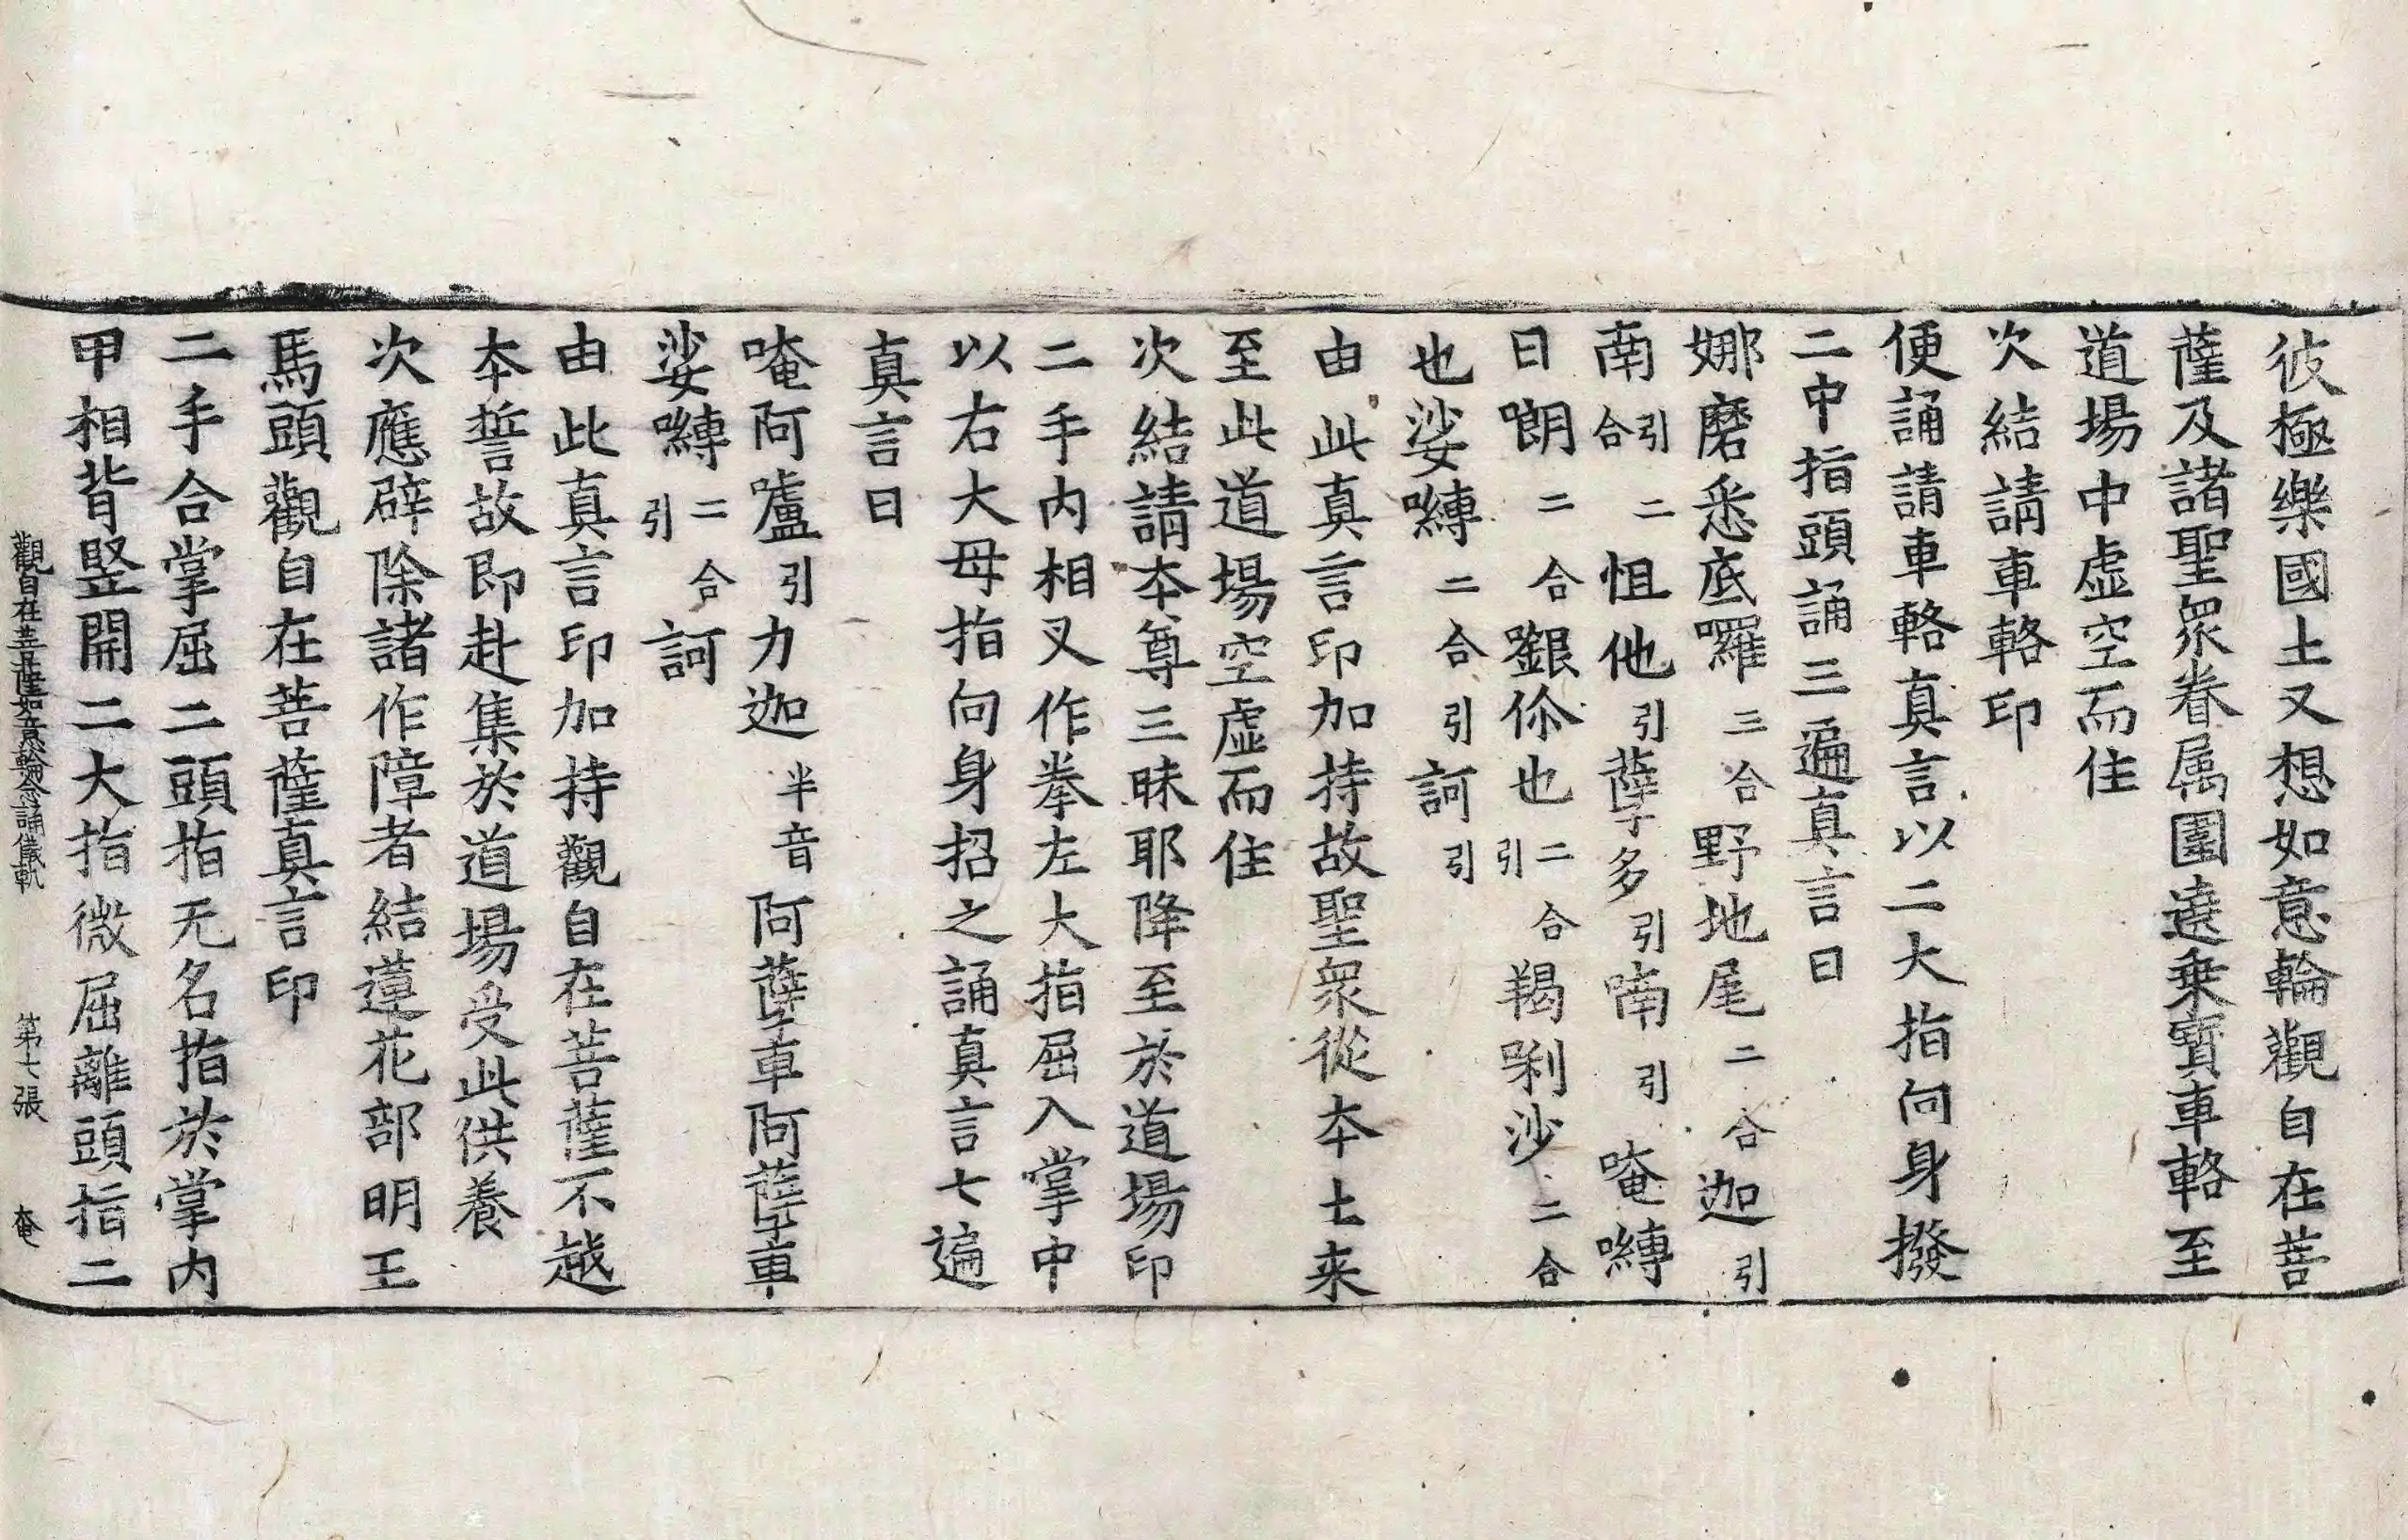 彼極樂國土又想如意輪觀自在菩
薩及諸聖衆眷属圍遶乗寳車輅至
道場中虛空而住
次結請車輅印
便誦請車輅真言以二大指向身撥
二中指頭誦三遍真言曰
娜磨悉底囉三合野地尾二合迦引
南引合二怛他引孽多引喃引唵嚩
日㘑二合𡄣儞也二合引羯唎沙二合
也娑嚩二合引訶引
由此真言印加持故聖衆從本土来
至此道場空虛而住
次結請本尊三昧耶降至於道場印
二手内相叉作拳左大指屈入掌中
以右大母指向身招之誦真言七遍
真言曰
唵阿嚧引力迦半音阿孽車阿孽車
娑嚩二合引訶
由此真言印加持觀自在菩薩不越
本誓故即赴集於道場受此供養
次應辟除諸作障者結蓮花部明王
馬頭觀自在菩薩真言印
二手合掌屈二頭指无名指於掌内
甲相背竪開二大指微屈離頭指二
觀自在菩薩如意輪念誦儀軌 第七張 奄